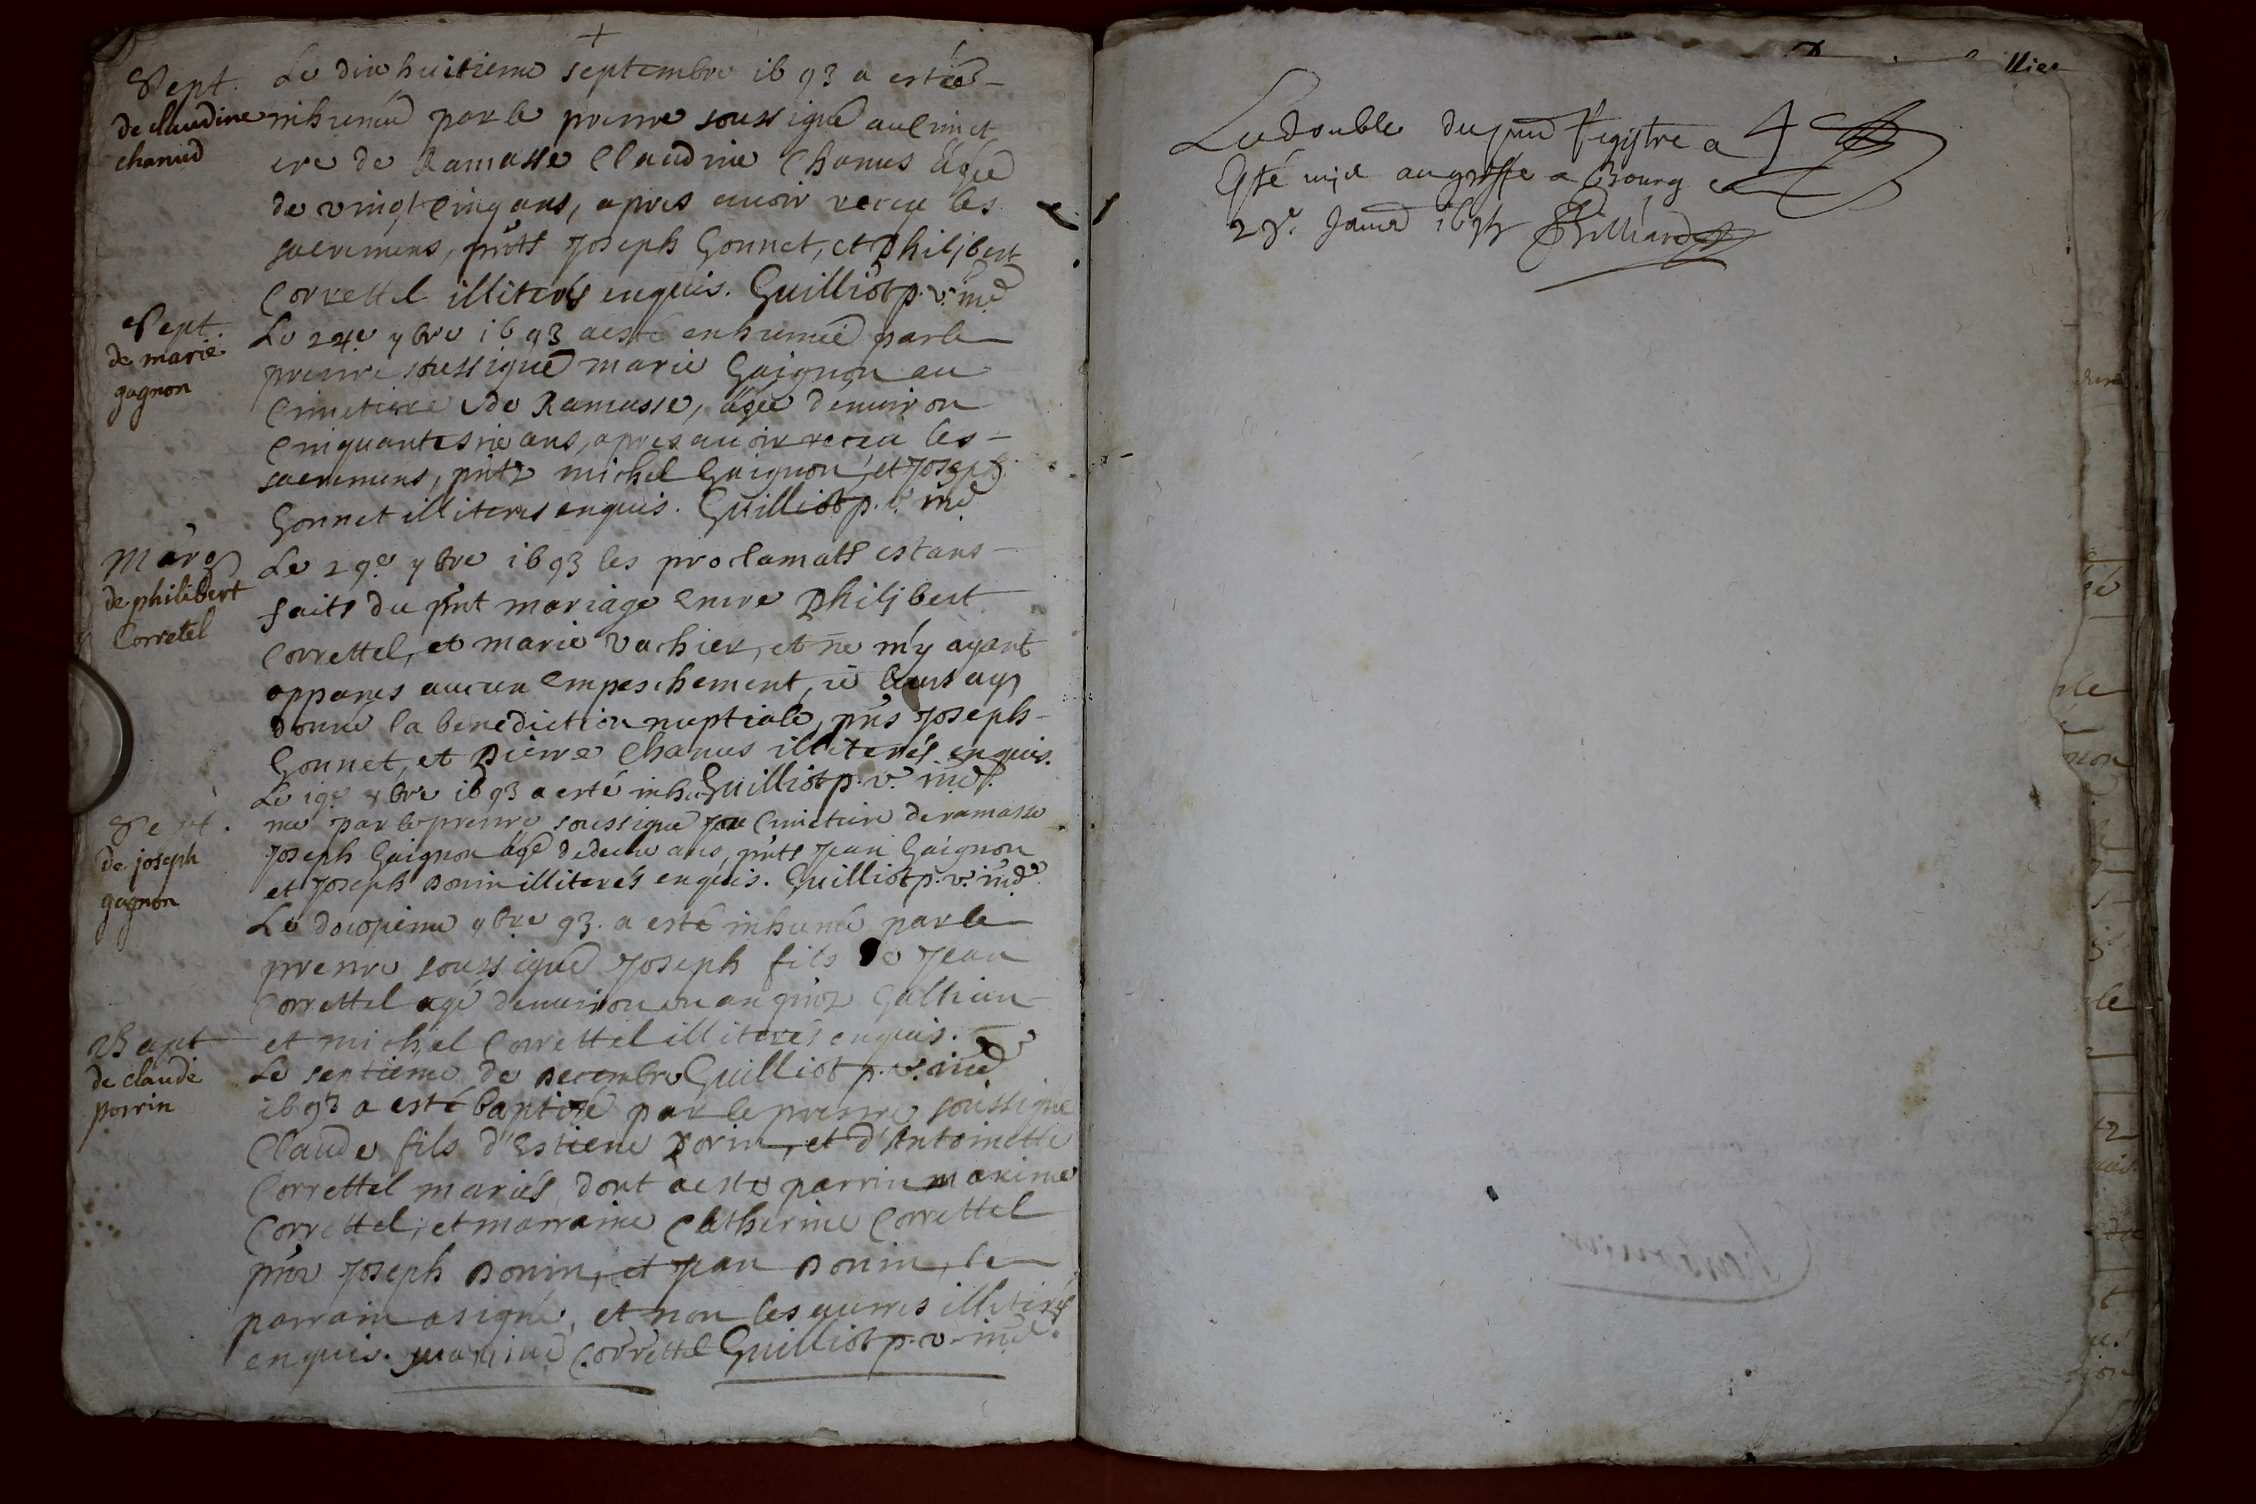 Sept.
de claudine
chanud
Le dixhuitieme septembre 1693 a estée
inhumée par le prestre soussigné au cimet
ere de Ramasse Claudine Chanus âgée
de vingt cinq ans, apres auoir receu les
sacremens, pnts Joseph Gonnet, et Philibert
Correttel illiterés enquis. Guilliot p. v. ind.
Sept.
de marie
gagnon
Le 24e 7bre 1693 a esté enhumée par le
prestre soussigné marie Gaignon au
Cimetiere de Ramasse, âgée d'enuiron
Cinquante six ans, apres auoir receu les
sacremens, pnts michel Gaignon, et Joseph
Gonnet illiteres enquis. Guilliot p. v. ind.
Marg
de philibert
Corretel
Le 29e 7bre 1693 les proclamats estans
faits du pnt mariage entre Philibert
Correttel, et marie Vachier, et ne m'y ayant
apparus aucun empeschement, ie leurs ay
donné la benediction nuptiale, pns Joseph
Gonnet, et Pierre Chanus illiterés enquis.
Guilliot p. v. ind.
Sept.
de joseph
gagnon
Le 19e 8bre 1693 a esté inhu
mé par le prestre soussigné au Cimetiere de ramasse
Joseph Gaignon âgé de deux ans, pnts Jean Gaignon
et Joseph Bonin illiterés enquis. Guilliot p. v. ind.
Le 9bre 93. a esté inhumé par le
prestre soussigné Joseph fils de Jean
Correttel agé d'enuiron un an
et michel Correttel illiterés enquis.
Guilliot p. v. ind.
Bapt
de claude
porrin
Le septieme de Decembre
1693 a esté baptisé par le prestre soussigné
Claude fils d'Estiene Porin, et d'Antoinette
Correttel mariés dont a esté parrin maxime
Correttel, et marraine Catherine Correttel
pns Joseph Bonin, et Jean Bonin, le
parrain a signé, et non les autres illiterés
enquis. maxime Correttel Guilliot p. v. ind.
Le double du pnt Registre a
esté mis au greffe a Bourg ce
Janur Billiard